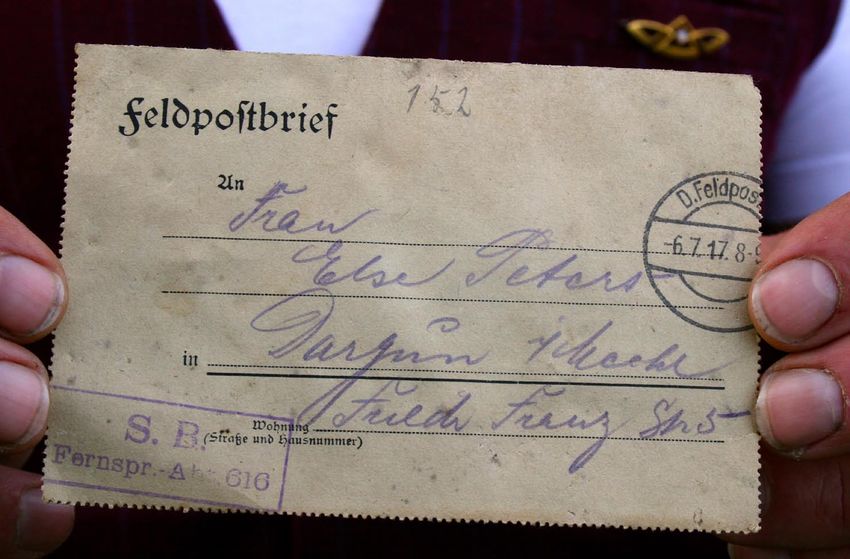 Feldpostbrief
152
An
Frau
D. Feldpos
-6.7.17. 8-9
Else Peters
in Dargun i/Meckl
Wohnung
(Straße und Hausnummer)
Friedr Franz Str 5
S. B.
Fernspr.-A 616